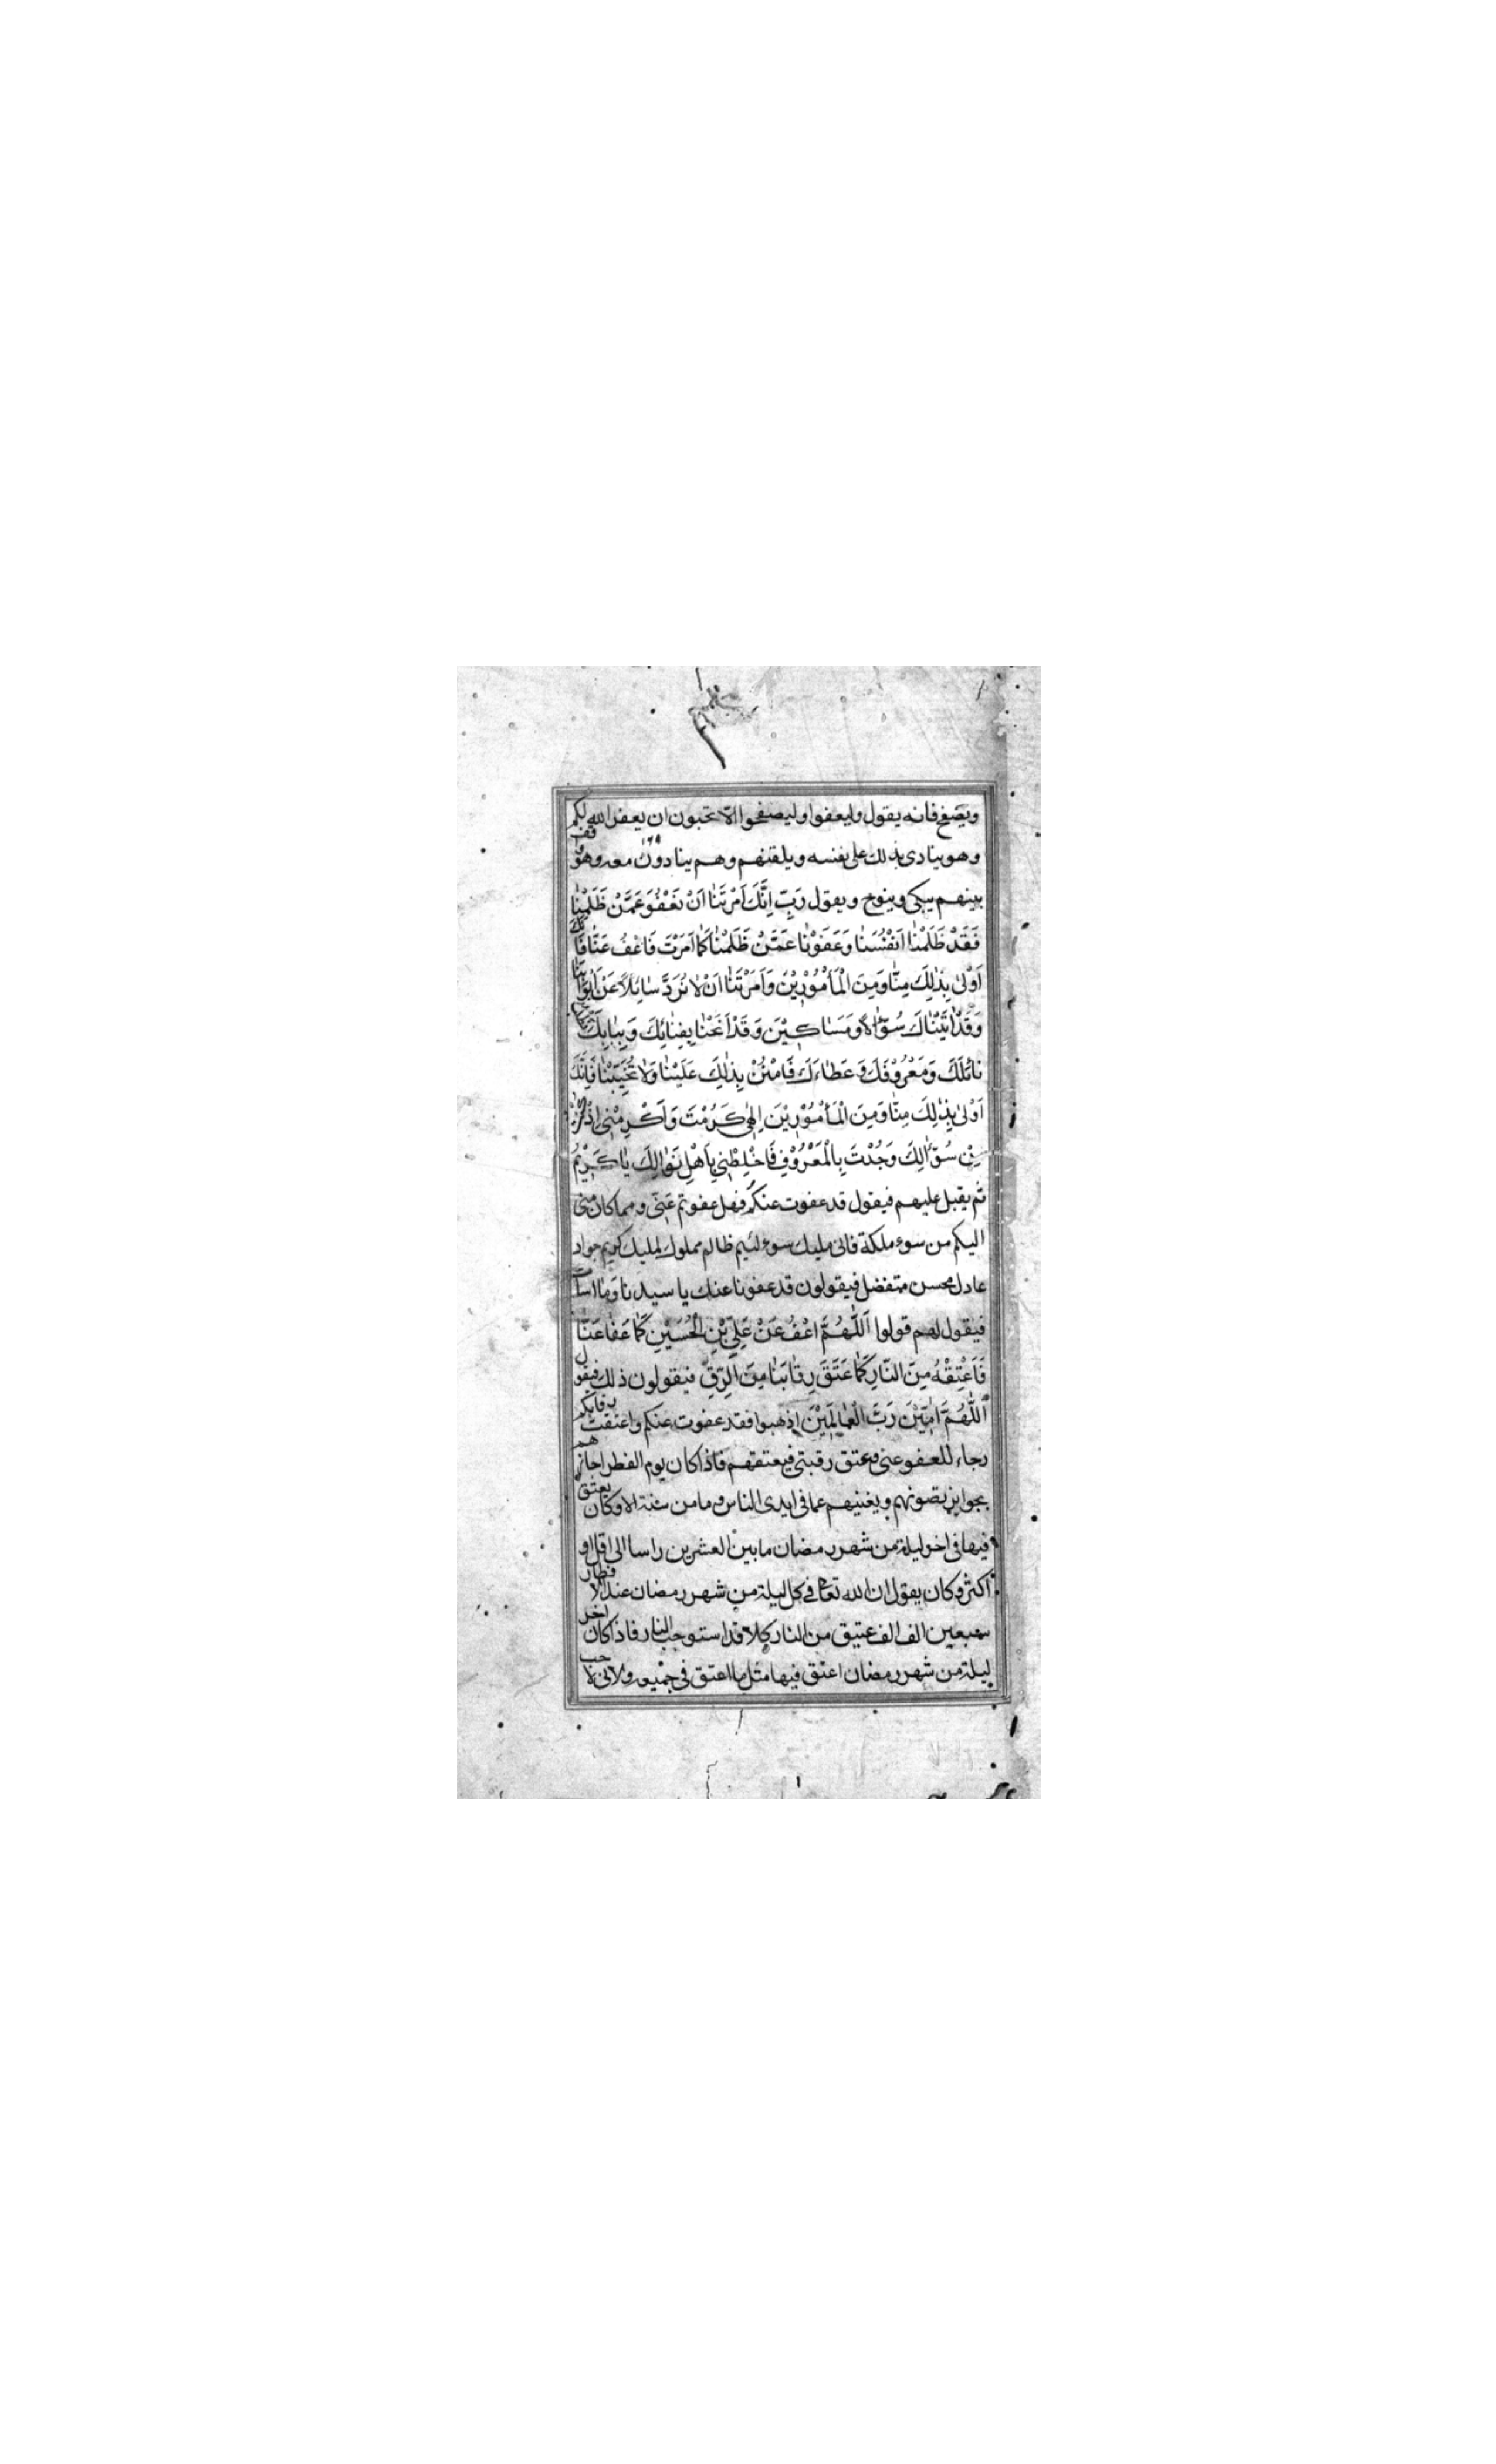 ويصفح فانه يقول وليعفوا وليصفحوا الا تحبون ان يغفر الله لكم
وهو ينادى بذلك على نفسه ويلقنهم وهم ينادون معه وهو واقف
بينهم يبكى وينوح ويقول رَبِّ اِنَّكَ اَمَرْتَنٰا اَنْ نَعْفُوَ عَمَّنْ ظَلَمَنٰا
فَقَدْ ظَلَمْنٰا اَنْفُسَنٰا وَعَفَوْنٰا عَمَّنْ ظَلَمَنٰا كَمٰا اَمَرْتَ فَاعْفُ عَنّٰا فَاِنَّكَ
اَوْلىٰ بِذٰلِكَ مِنّٰا وَمِنَ الْمَأْمُوْرِيْنَ وَاَمَرْتَنٰا اَنْ لاٰ نَرُدَّ سٰائِلاً عَنْ اَبْوٰابِنٰا
وَقَدْ اَتَيْنٰاكَ سُؤّٰالاً وَمَسَاكِيْنَ وَقَدْ اَنَخْنٰا بِفِنٰائِكَ وَبِبٰابِكَ
نائِلَكَ وَمَعْرُوْفَكَ وَعَطٰاءَكَ فَامْنُنْ بِذٰلِكَ عَلَيْنٰا وَلاٰ تُخَيِّبْنٰا فَاِنَّكَ
اَوْلىٰ بِذٰلِكَ مِنّٰا وَمِنَ الْمَأْمُوْرِيْنَ اِلٰهى كَرُمْتَ وَاَكْرِمْنِى اِذْ كُنْتُ
مِنْ سُؤّٰالِكَ وَجُدْتَ بِالْمَعْرُوْفِ فَاخْلِطْنِى بِاَهْلِ نَوٰالِكَ يٰا كَرِيْمُ
ثم يقبل عليهم فيقول قد عفوت عنكم فهل عفوتم عَنّى ومما كان منى
اليكم من سوء ملكة فانى مليك سوء لئيم ظالم مملوك لمليك كريم جواد
عادل محسن متفضل فيقولون قد عفونا عنك يا سيدنا وَمٰا اسأت
فيقول لهم قولوا اَللّٰهُمَّ اعْفُ عَنْ عَلِيِّ بْنِ الْحُسَيْنِ كَمٰا عَفٰا عَنّٰا
فَاَعْتِقْهُ مِنَ النّٰارِ كَمٰا عَتَقَ رِقٰابَنٰا مِنَ الرِّقِّ فيقولون ذلك فيقول
اَللّٰهُمَّ اٰمِيْنَ رَبَّ الْعٰالَمِيْنَ اذهبوا فقد عفوت عنكم واعتقت رقابكم
رجاء للعفو عنى وعتق رقبتى فيعتقهم فاذا كان يوم الفطر اجازهم
بجوايز تصونهم ويغنيهم عما فى ايدى الناس وما من سنة الا وكان يعتق
فيها فى اخر ليلة من شهر رمضان ما بين العشرين راسا الى اقل او
اكثر وكان يقول ان الله تعالى فى كل ليلة من شهر رمضان عند الافطار
سبعين الف الف عتيق من النار كلا قد استوجب النار فاذا كان اخر
ليلة من شهر رمضان اعتق فيها مثل ما اعتق فى جميعه ولانى لاحب